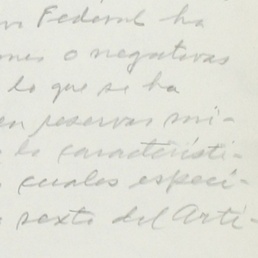 Federal ha
nes o negativas
lo que se ha
en reservas mi-
lo característi-
cuales especí-
sexto del Artí-